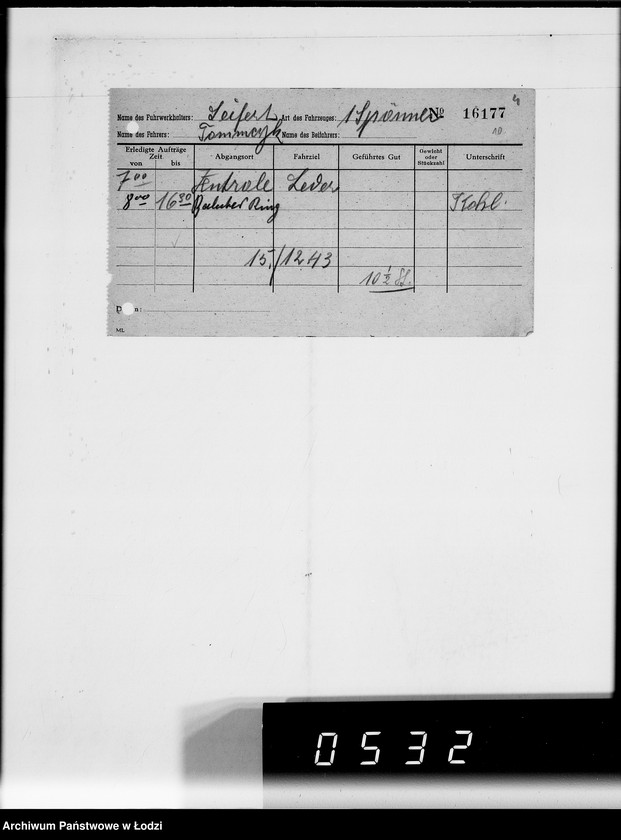 Name des Fuhrwerkhalters: Seifert Art des Fahrzeuges: 1 Spänner No 16177
Name des Fahrers: Tommczyk Name des Beifahrers: 10
Erledigte Aufträge
Zeit
von bis Abgangsort Fahrziel Geführtes Gut Gewicht oder Stückzahl Unterschrift
7 00 Zentrale Leder
8 00 16 30 Baluter Ring Kohl.
15./12.43
10 1/2 St.
ML
0532
Archiwum Państwowe w Łodzi